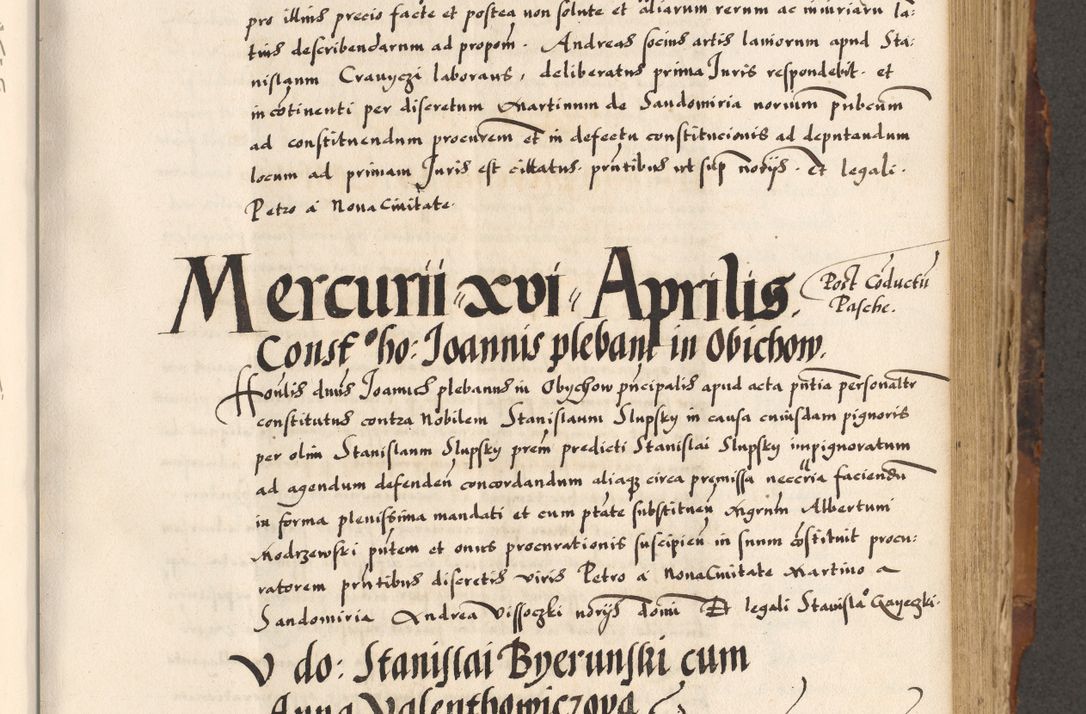 pro illius precio facte et postea non solute et aliarum rerum ac iniuriaru la:
tius describendarum ad propom̄. Andreas socius artis laniorum apud Sta:
nislaum Crauyczi laborans, deliberatus prima Juris respondebit. et
in cōtinenti per discretum Martinum de Sandomiria norium pubcum
ad constituendum procurem et in defectu constitucionis ad deputandum
locum ad primam Juris est cittatus. pn̄tibus ut sup norijs. et legali.
Petro a Nova Civitate.
Mercurii xvi Aprilis.
Post Cōductū
Pasche.
Const. ho: Joannis plebani in Obichow.
Honlis dnus Joannes plebanus in Obychow pn̄cipalis apud acta pn̄tia personaltr
constitutus contra Nobilem Stanislaum Slupsky in causa cuiusdam pignoris
per olim Stanislaum Slupsky prem̄ predicti Stanislai Slupsky impignoratum
ad agendum defenden̄ concordandum aliaqȝ circa premissa neccria faciendū
in forma plenissima mandati et cum ptāte substituen̄ Mgrum Albertum
Modrzewski pn̄tem et onus procurationis suscipien̄ in suum cōstituit procu:
ratorem pn̄tibus discretis viris Petro a Nova Civitate Martino a
Sandomiria Andrea Vissoczki norijs domi et legali Stanislao Gayeczki.
V do: Stanislai Byerunski cum
Anna Valenthowiczova